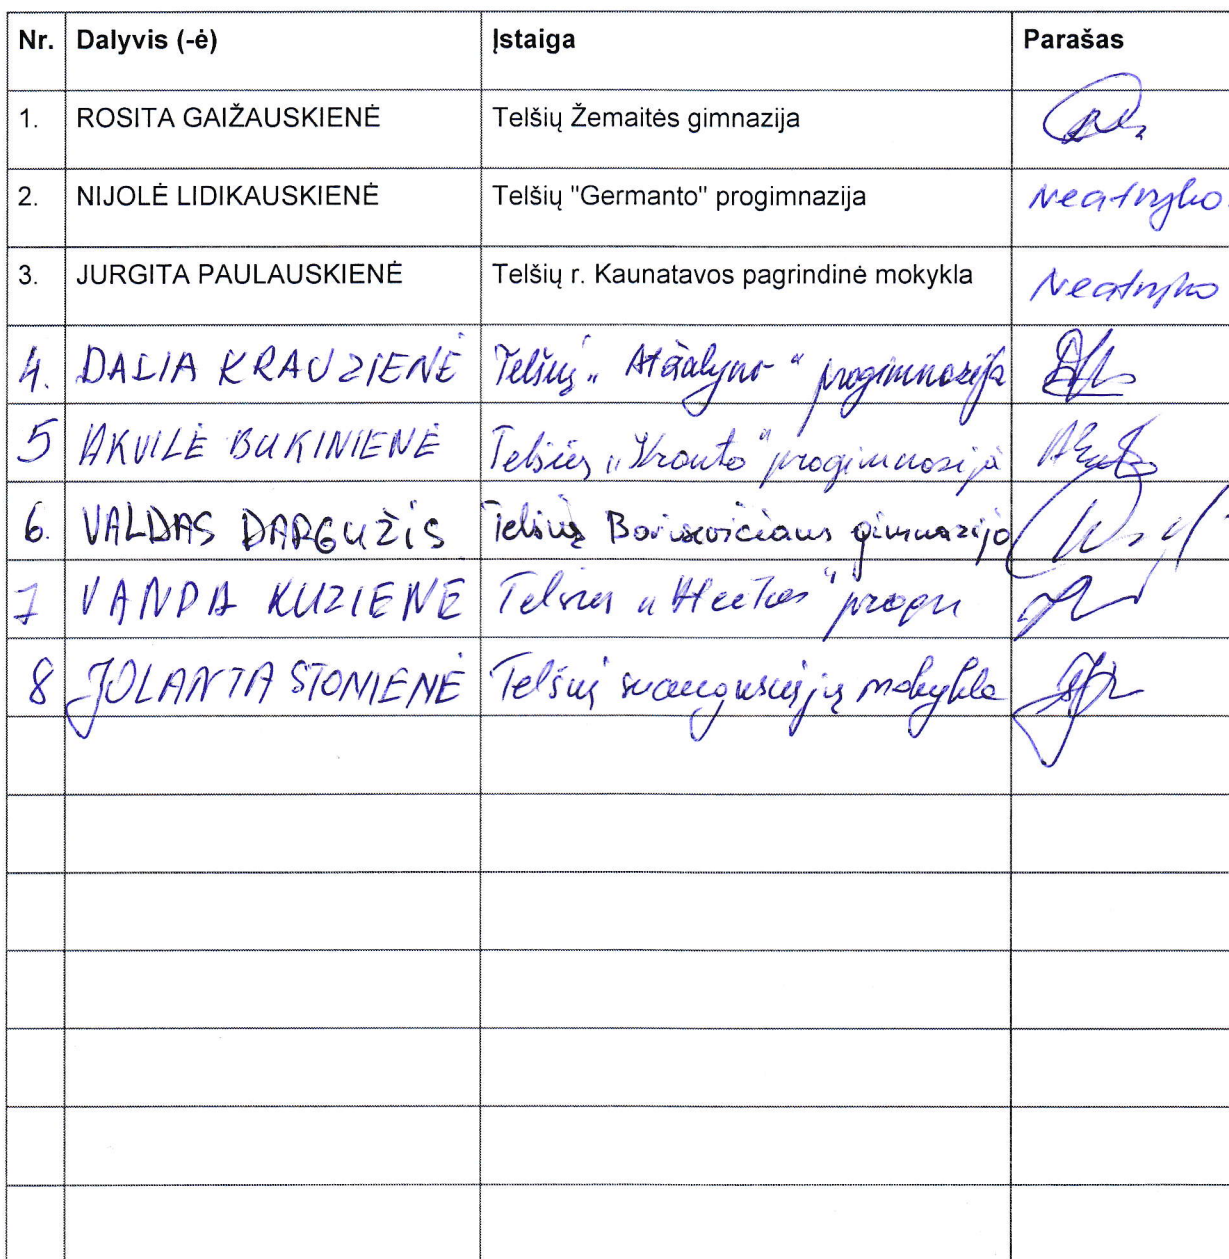 Nr. Dalyvis (-ė) Įstaiga Parašas
1. ROSITA GAIŽAUSKIENĖ Telšių Žemaitės gimnazija
2. NIJOLĖ LIDIKAUSKIENĖ Telšių "Germanto" progimnazija Neatvyko
3. JURGITA PAULAUSKIENĖ Telšių r. Kaunatavos pagrindinė mokykla Neatvyko
4. DALIA KRAUZIENĖ Telšių „Atžalyno“ progimnazija
5 AKVILĖ BUKINIENĖ Telšių „Kranto“ progimnazija
6. VALDAS DARGUŽIS Telšių Borisevičiaus gimnazija
7 VANDA KUZIENĖ Telšių „Ateities“
8 JOLANTA STONIENĖ Telšių suaugusiųjų mokykla